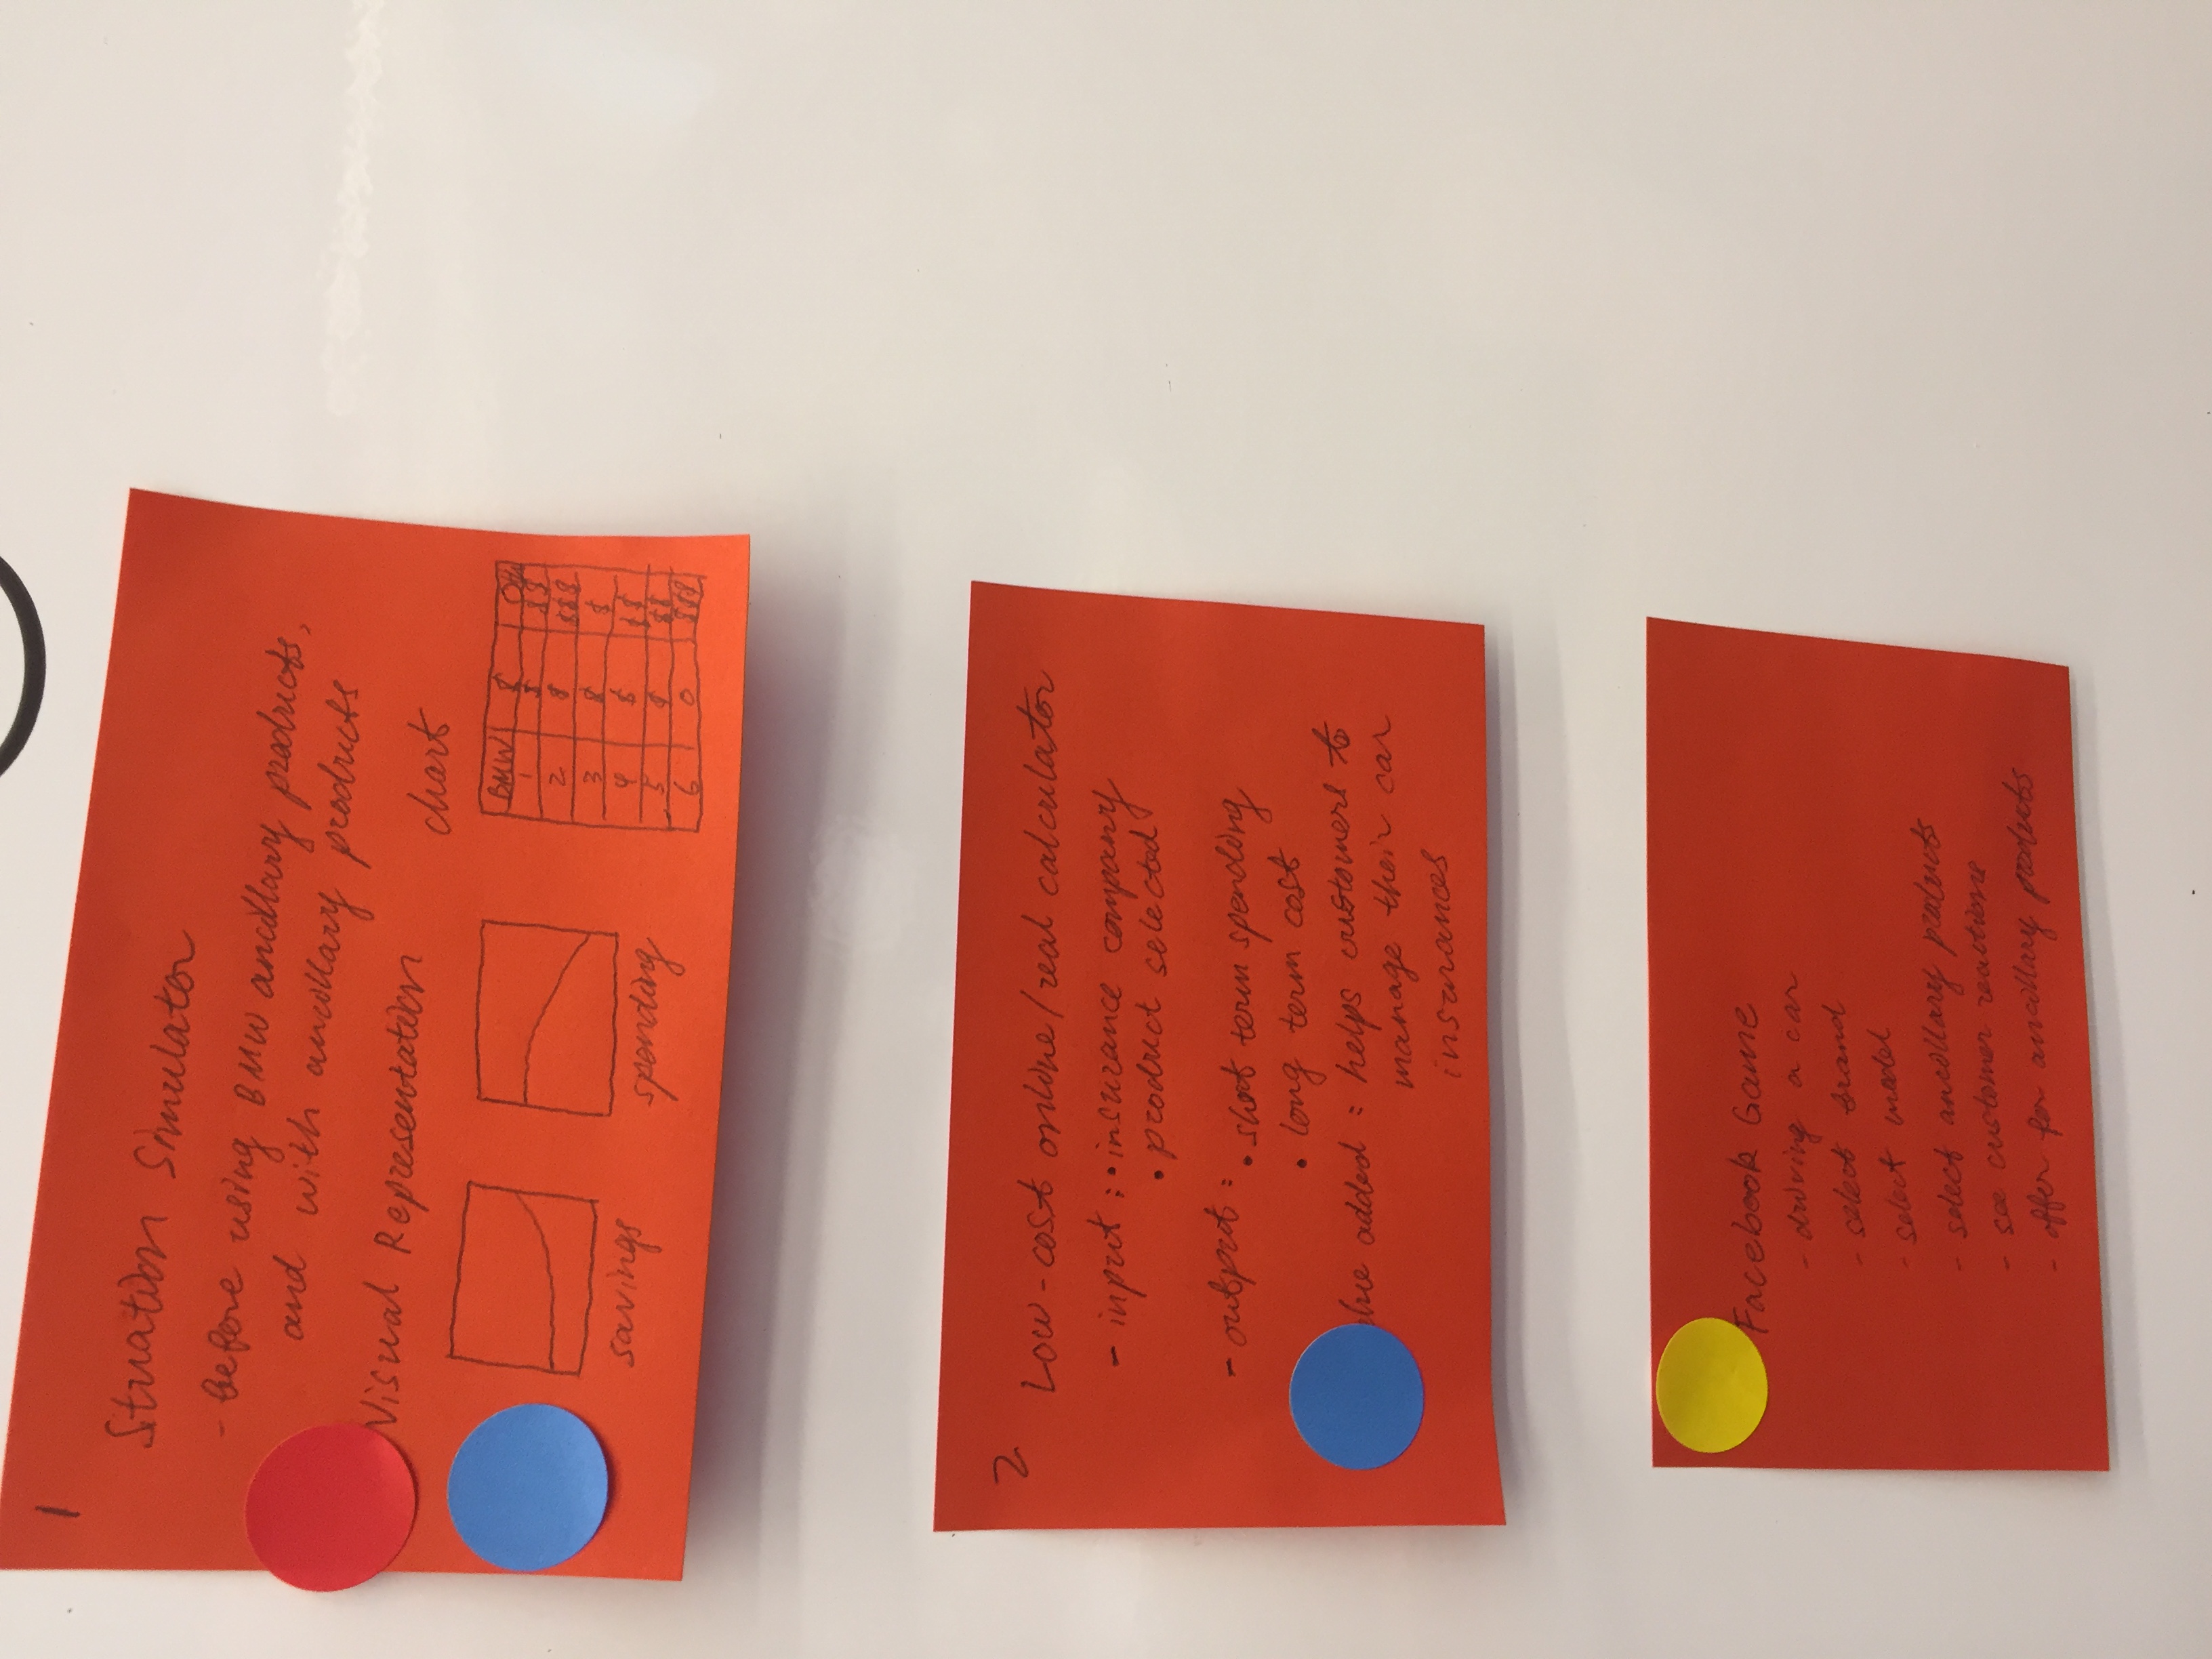 1
Situation Simulator
- before using BMW ancillary products,
and with ancillary products
Visual Representation
chart
savings
spending
BMW $ Oth
1 $ $$
2 $ $$$
3 $ $
4 $ $$
5 $ $$
6 0 $$$
2
Low-cost online/real calculator
- input : • insurance company
• product selected
- output : • short term spending
• long term cost
added : helps customers to
manage their car
insurances
Facebook Game
- driving a car
- select brand
- select model
- select ancillary products
- see customer reactions
- offer for ancillary products